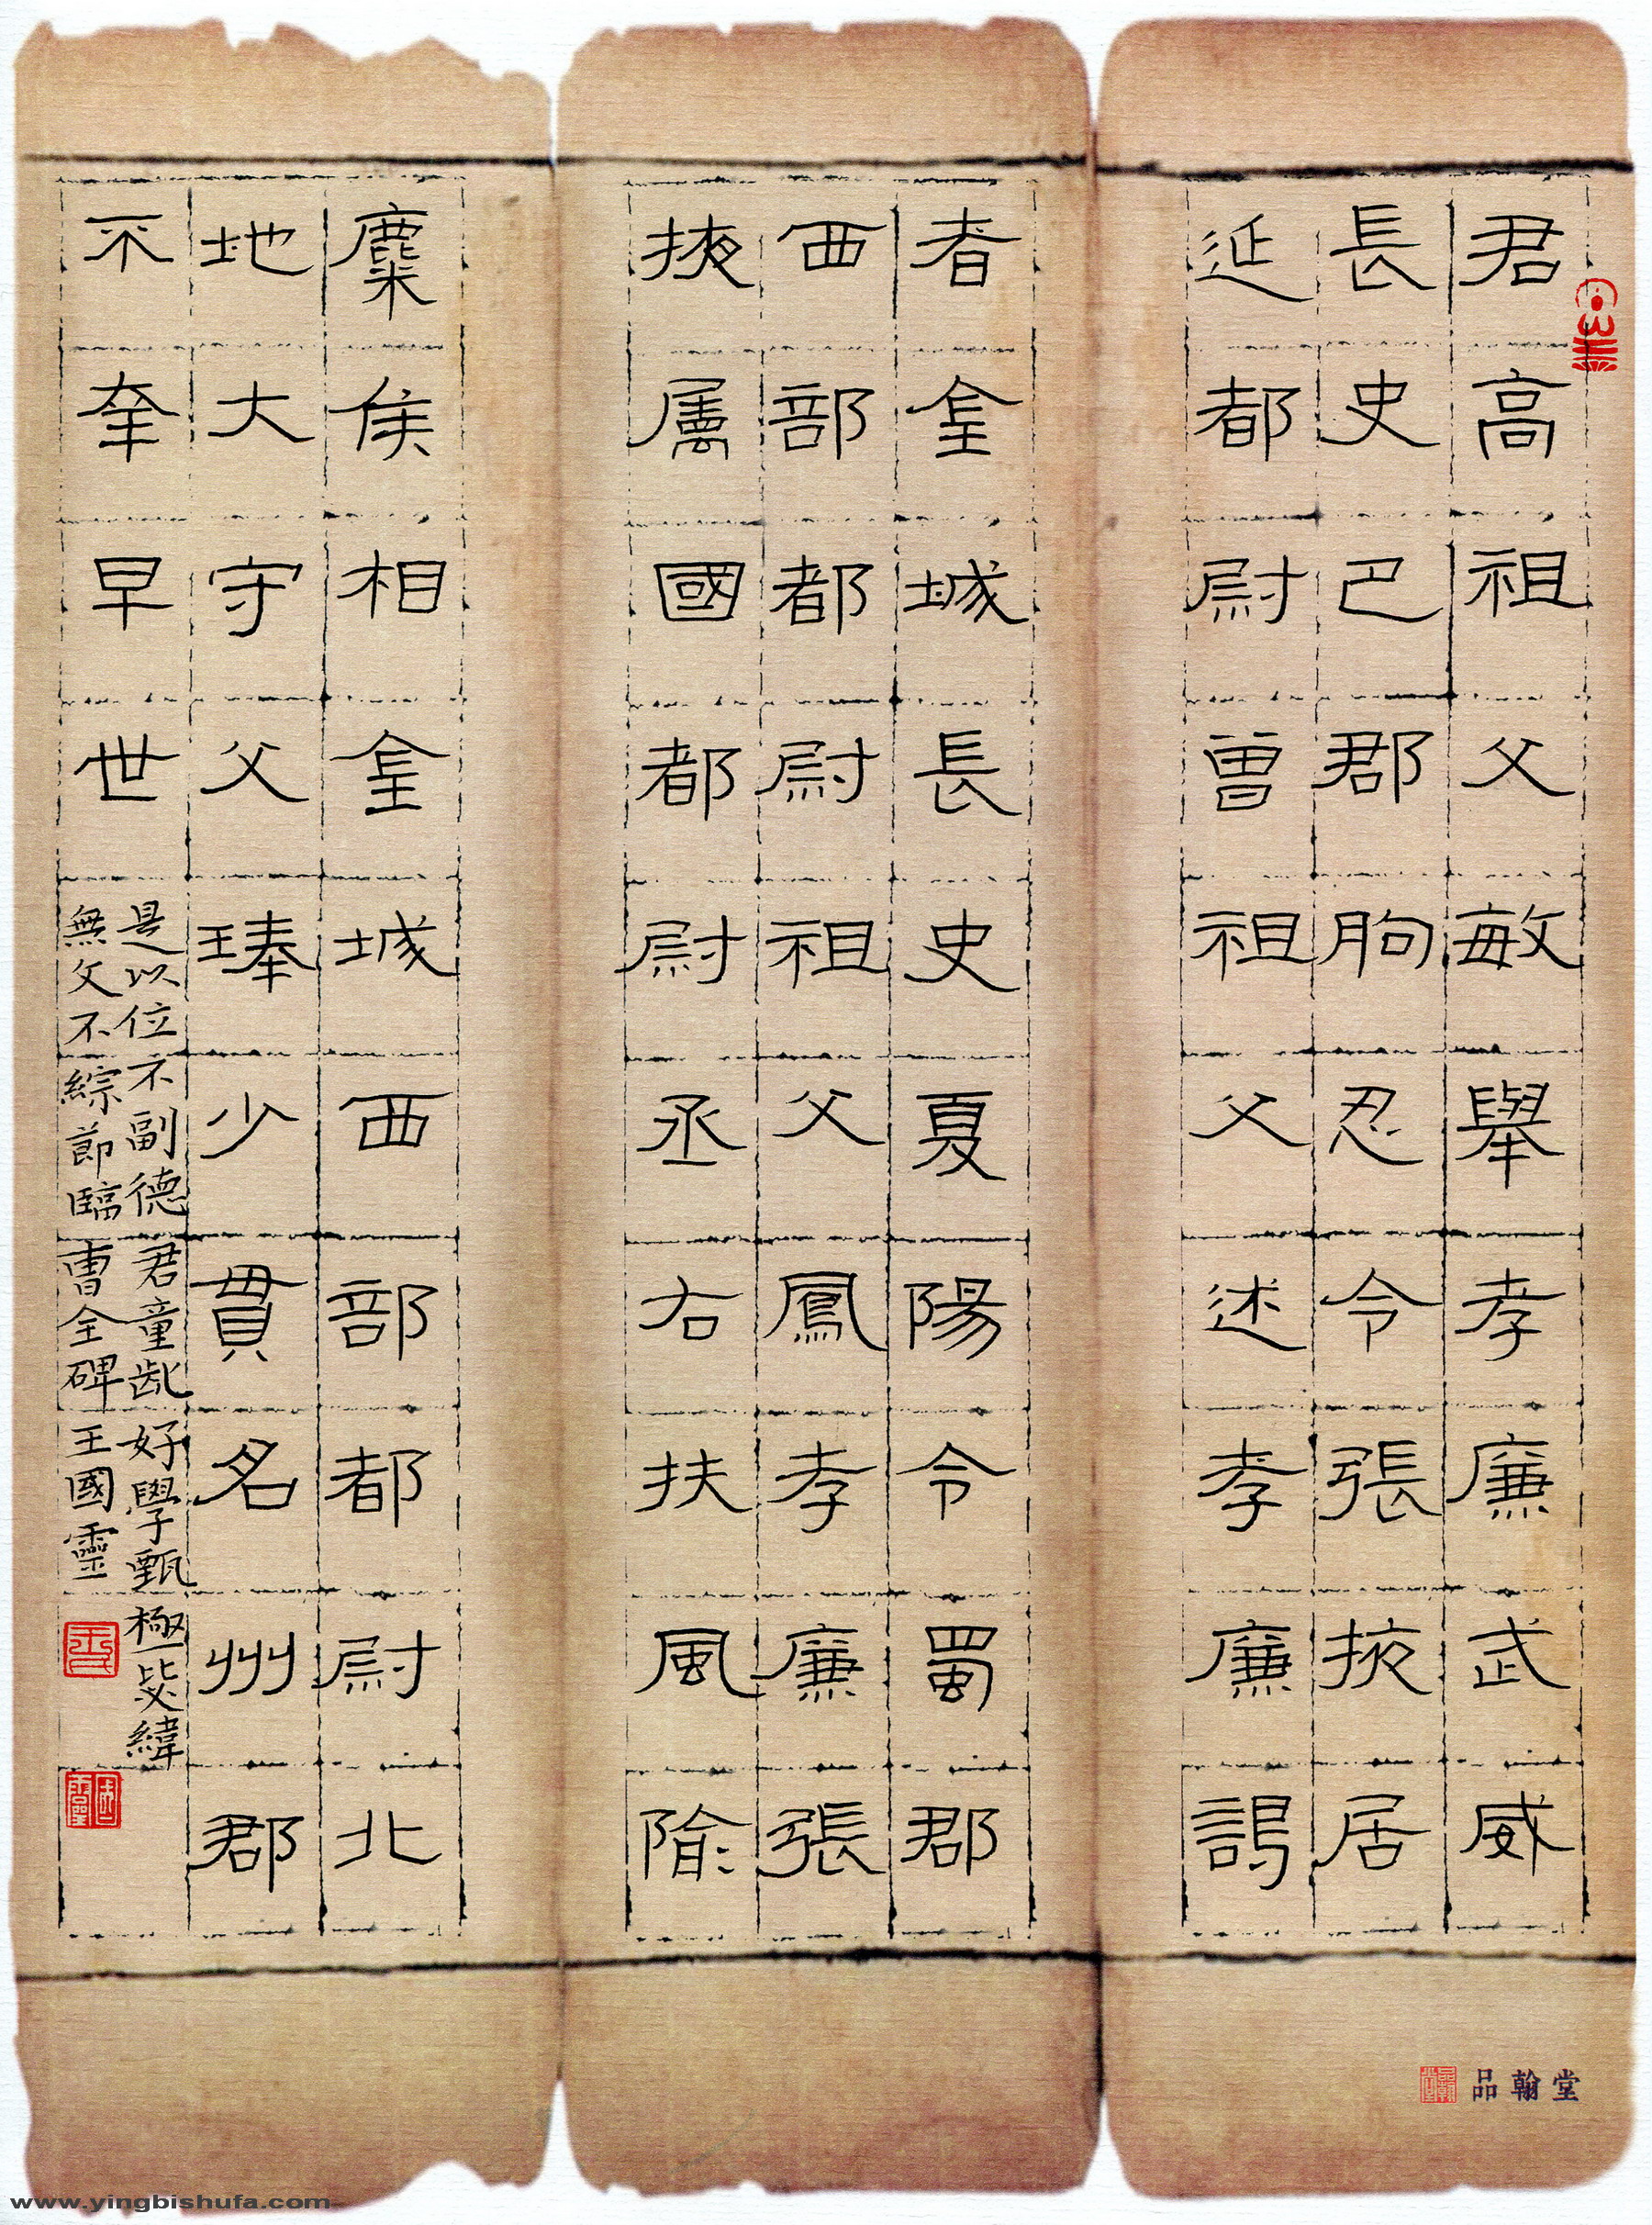 君高祖父敏舉孝廉武威
長史巴郡朐忍令張掖居
延都尉曾祖父述孝廉謁
者金城長史夏陽令蜀郡
西部都尉祖父鳳孝廉張
掖屬國都尉丞右扶風隃
麋侯相金城西部都尉北
地大守父琫少貫名州郡
不幸早世
是以位不副德君童齔好學甄極毖緯
無文不綜節臨曹全碑王國靈
品翰堂
www.yingbishufa.com